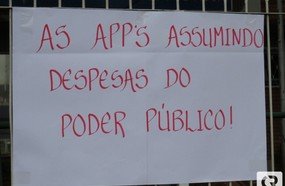 AS APP'S ASSUMINDO
DESPESAS DO
PODER PÚBLICO!